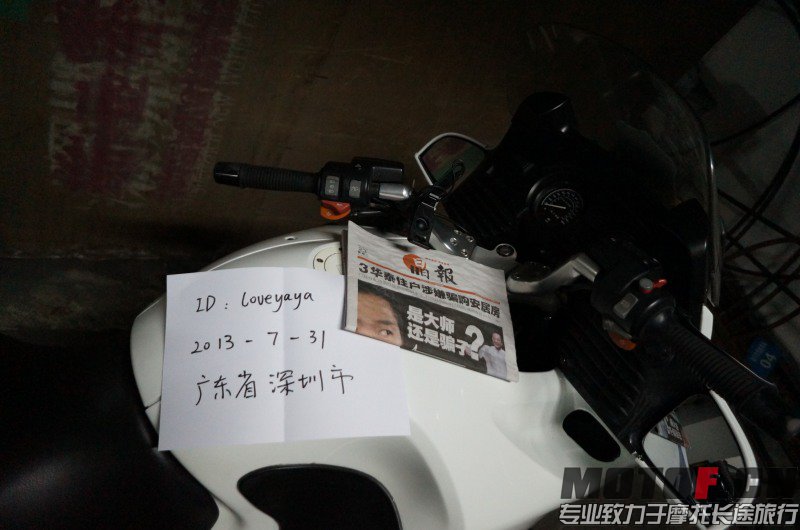 ID: loveyaya
2013-7-31
广东省深圳市
晶報
3华泰住户涉嫌骗购安居房
是大师
还是骗子?
04
MOTOFCN
专业致力于摩托长途旅行